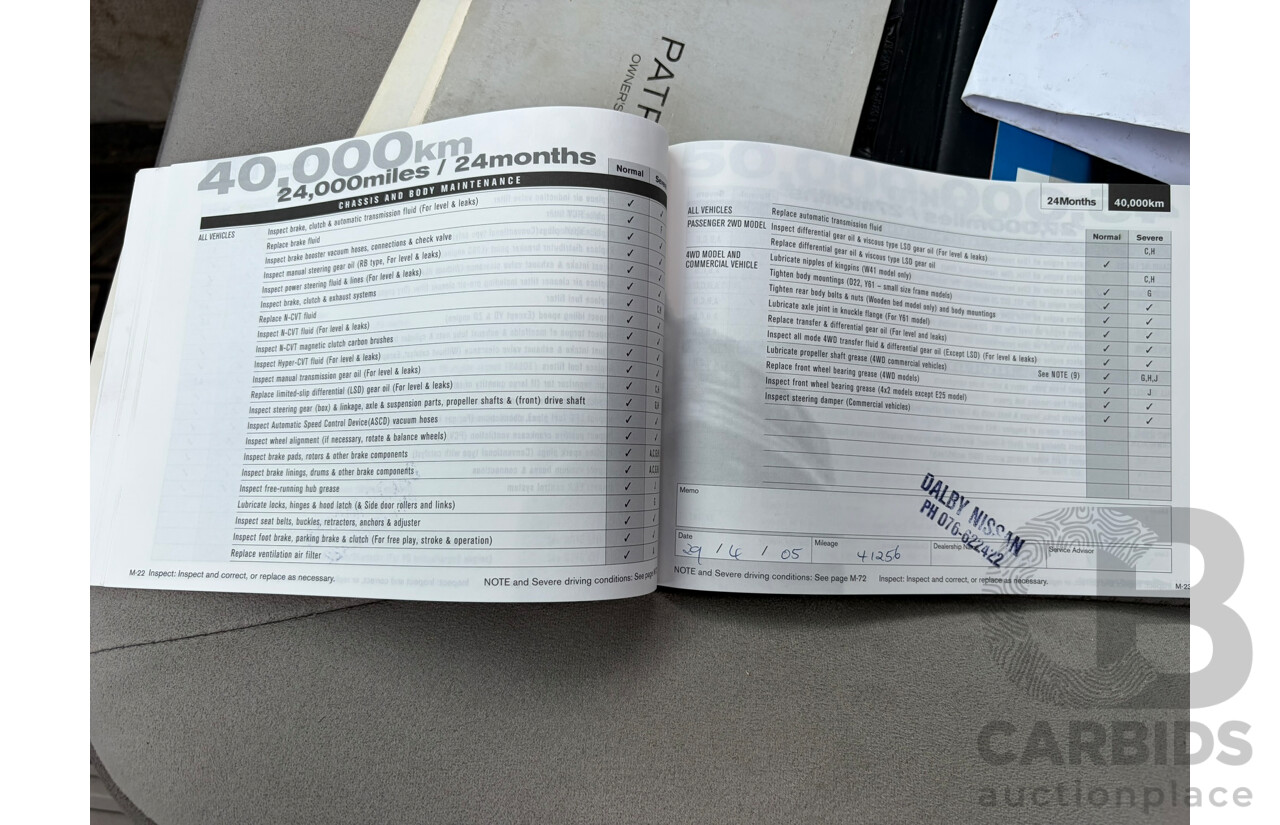 PATR
OWNER'S
40,000km
24,000miles / 24months
CHASSIS AND BODY MAINTENANCE
Normal
ALL VEHICLES
Inspect brake, clutch & automatic transmission fluid (For level & leaks) ✓
Replace brake fluid ✓
Inspect brake booster vacuum hoses, connections & check valve ✓
Inspect manual steering gear oil (RB type, For level & leaks) ✓
Inspect power steering fluid & lines (For level & leaks) ✓
Inspect brake, clutch & exhaust systems ✓
Replace N-CVT fluid ✓
Inspect N-CVT fluid (For level & leaks) ✓
Inspect N-CVT magnetic clutch carbon brushes ✓
Inspect Hyper-CVT fluid (For level & leaks) ✓
Inspect manual transmission gear oil (For level & leaks) ✓
Replace limited-slip differential (LSD) gear oil (For level & leaks) ✓
Inspect steering gear (box) & linkage, axle & suspension parts, propeller shafts & (front) drive shaft ✓
Inspect Automatic Speed Control Device(ASCD) vacuum hoses ✓
Inspect wheel alignment (if necessary, rotate & balance wheels) ✓
Inspect brake pads, rotors & other brake components ✓
Inspect brake linings, drums & other brake components ✓
Inspect free-running hub grease ✓
Lubricate locks, hinges & hood latch (& Side door rollers and links) ✓
Inspect seat belts, buckles, retractors, anchors & adjuster ✓
Inspect foot brake, parking brake & clutch (For free play, stroke & operation) ✓
Replace ventilation air filter ✓
M-22 Inspect: Inspect and correct, or replace as necessary.
NOTE and Severe driving conditions: See page
24Months 40,000km
Normal Severe
ALL VEHICLES
Replace automatic transmission fluid C,H
PASSENGER 2WD MODEL
Inspect differential gear oil & viscous type LSD gear oil (For level & leaks) ✓
Replace differential gear oil & viscous type LSD gear oil C,H
4WD MODEL AND
COMMERCIAL VEHICLE
Lubricate nipples of kingpins (W41 model only) ✓ G
Tighten body mountings (D22, Y61 – small size frame models) ✓ ✓
Tighten rear body bolts & nuts (Wooden bed model only) and body mountings ✓ ✓
Lubricate axle joint in knuckle flange (For Y61 model) ✓ ✓
Replace transfer & differential gear oil (For level and leaks) ✓ ✓
Inspect all mode 4WD transfer fluid & differential gear oil (Except LSD) (For level & leaks) ✓ ✓
Lubricate propeller shaft grease (4WD commercial vehicles) See NOTE (9) ✓ G,H,J
Replace front wheel bearing grease (4WD models) ✓ J
Inspect front wheel bearing grease (4x2 models except E25 model) ✓ ✓
Inspect steering damper (Commercial vehicles) ✓ ✓
Memo
DALBY NISSAN
PH 076-622422
Date 29 / 4 / 05
Mileage 41256
Dealership
Service Advisor
NOTE and Severe driving conditions: See page M-72 Inspect: Inspect and correct, or replace as necessary.
M-22
CARBIDS
auctionplace